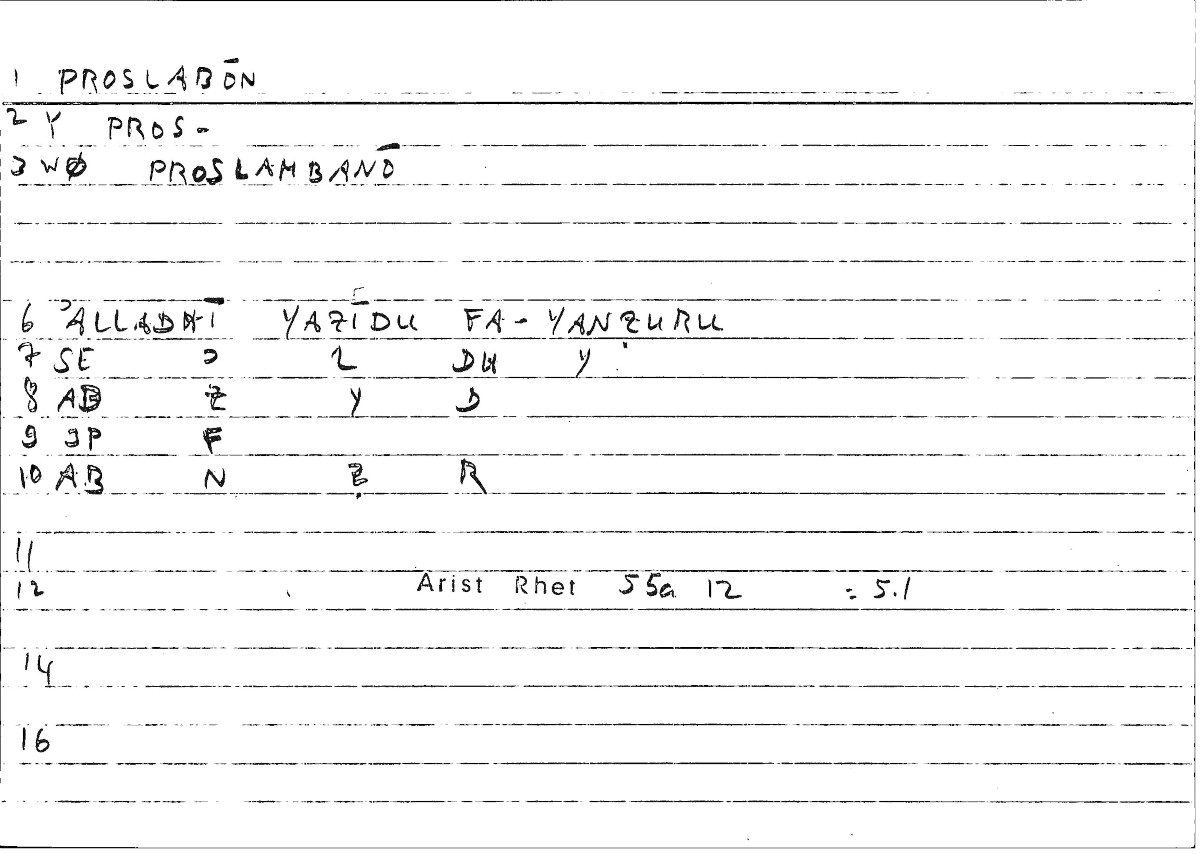 1 PROSLABŌN
2 Y PROS-
3 WØ PROSLAMBANŌ
6 ʾALLADHĪ YAZĪDU FA-YANẒURU
7 SE ʾ L DH Y
8 AB Z Y D
9 JP F
10 AB N Ẓ R
11
12 Arist Rhet 55a 12 = 5.1
14
16